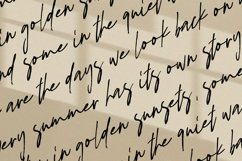 in golden sunsets
nd some in the quiet wa
are the days we look back on
ery summer has its own story
in golden sunsets, som
in the quiet wa